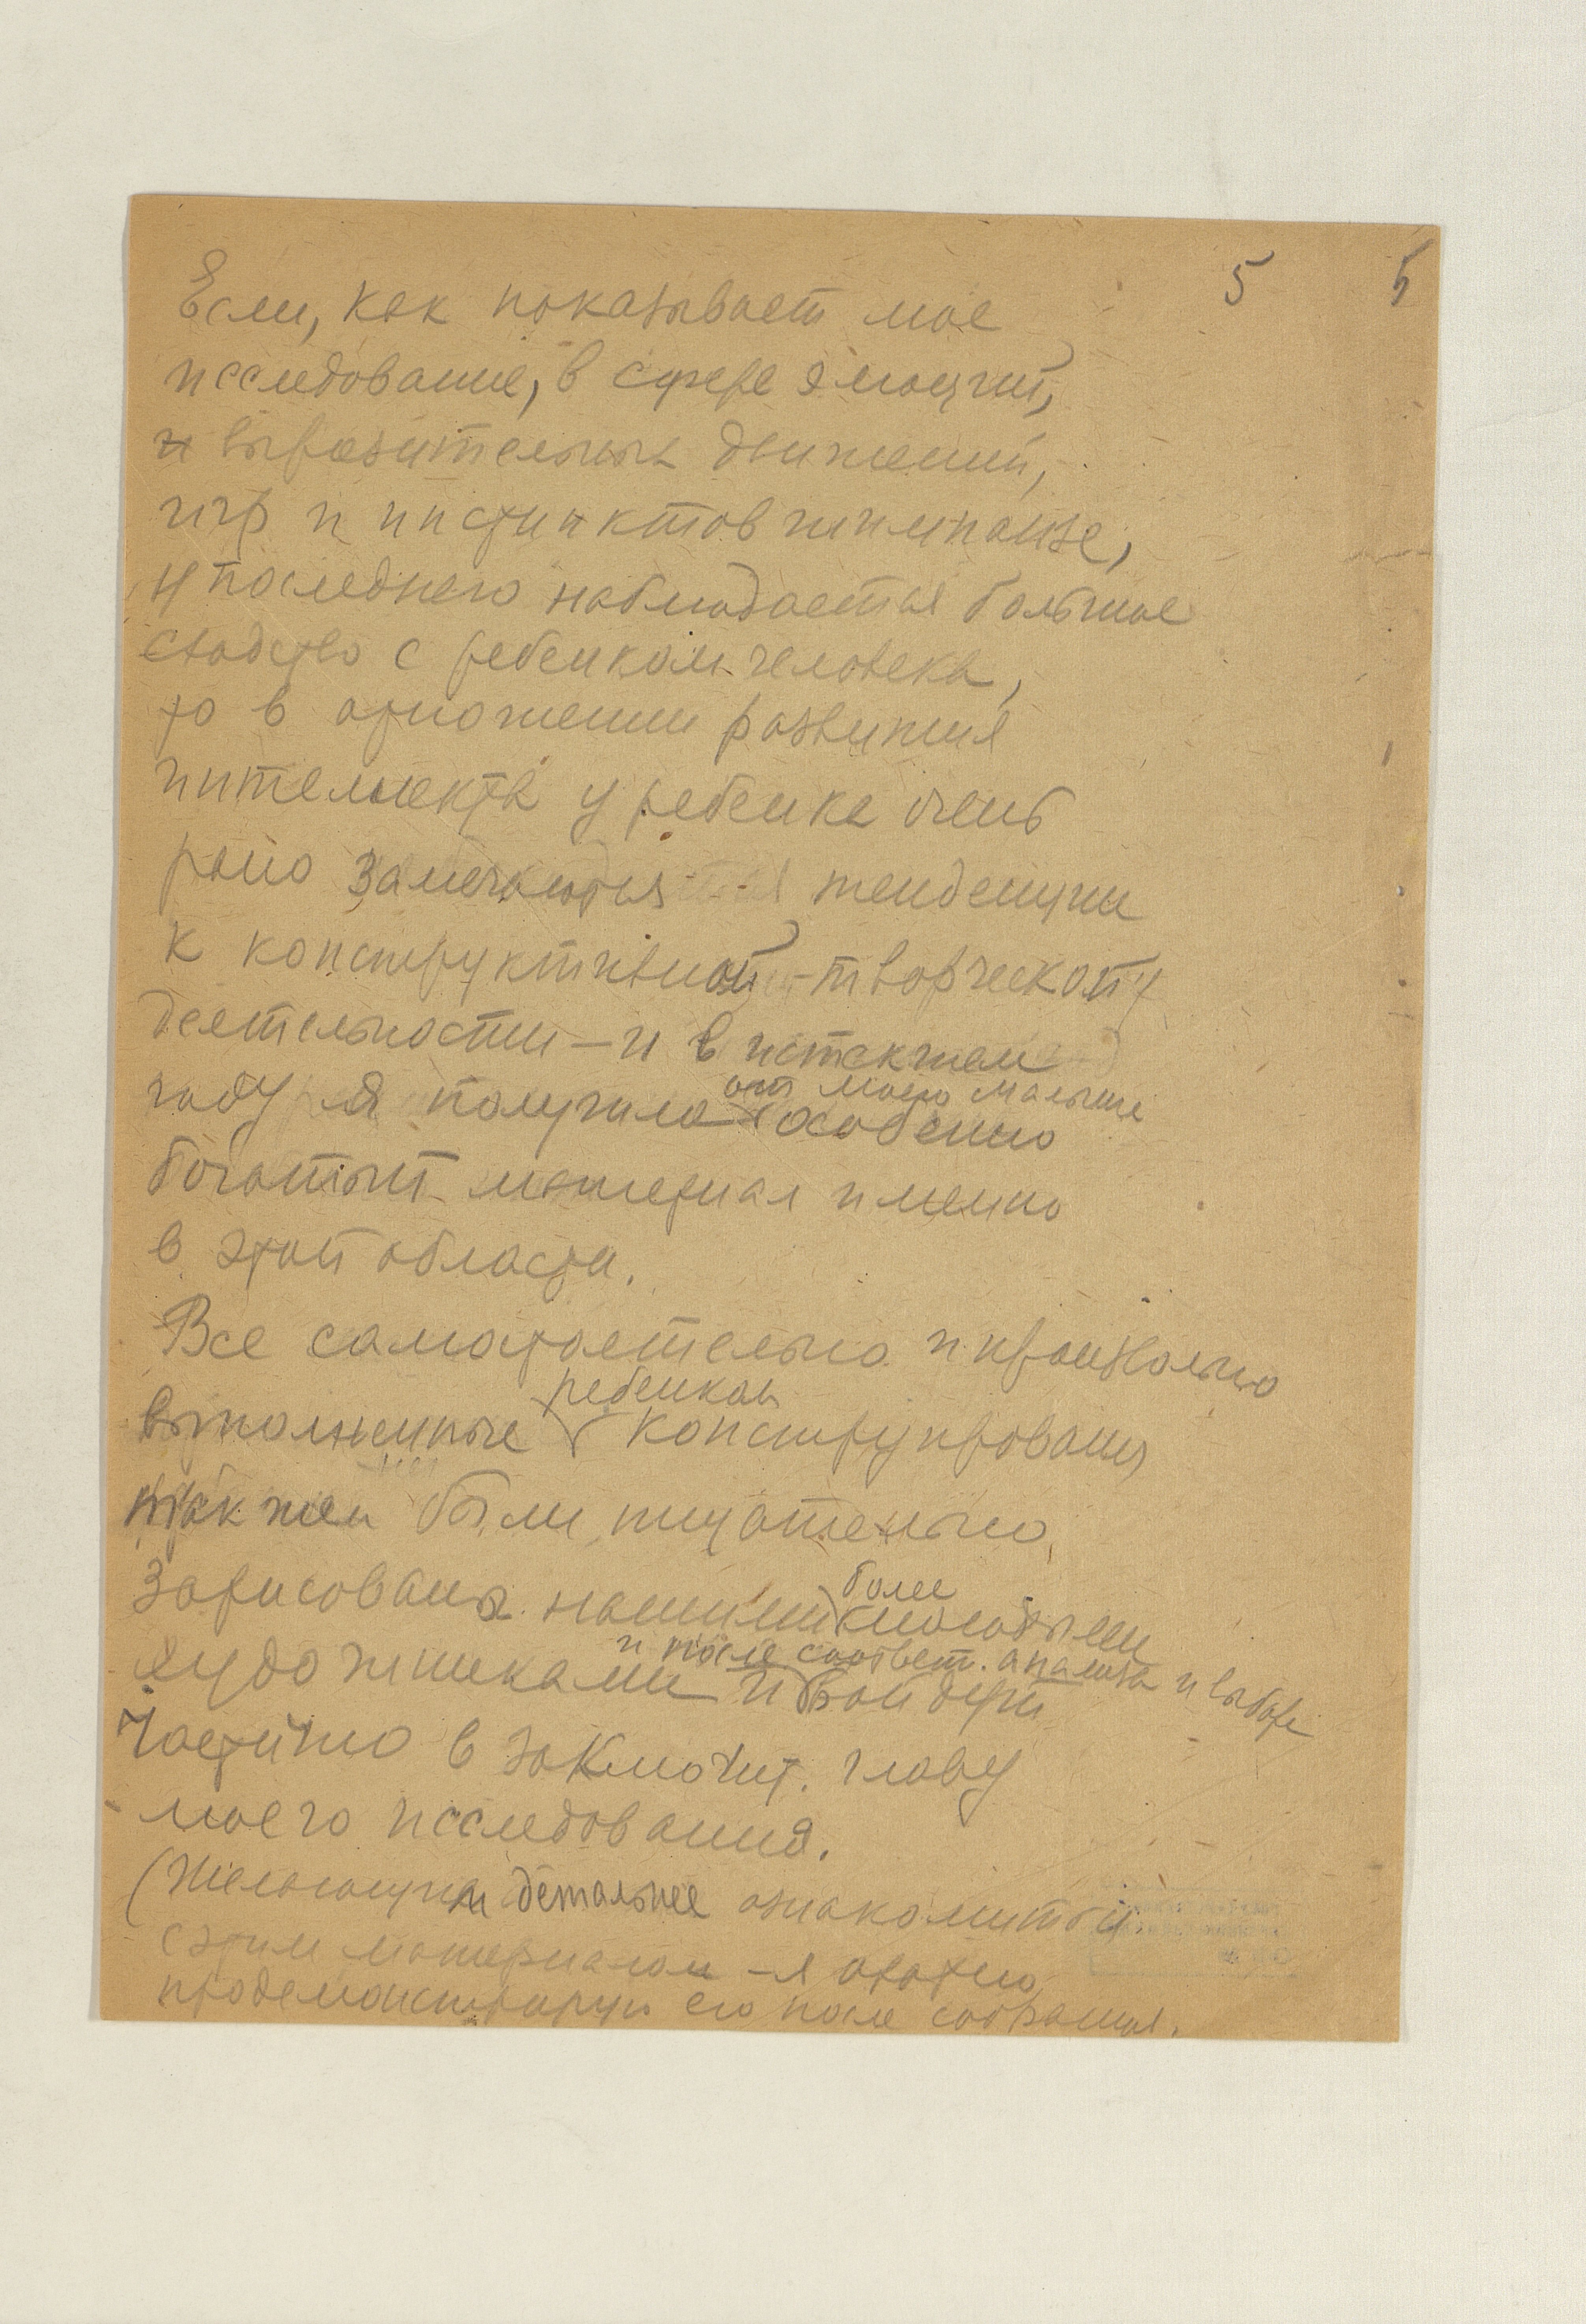 5 5
Если, как показывает мое
исследование, в сфере эмоций,
и выразительных движений,
игр и инстинктов шимпанзе,
у последнего наблюдается большое
сходство с ребенком человека,
то в отношении развития
интеллекта у ребенка очень
рано замечаются тенденции
к конструктивной-творческой
деятельности – и в истекшем
году я получила от моего малыша особенно
богатый материал именно
в этой области.
Все самостоятельно и произвольно
выполненные ребенком конструирования
также были тщательно
зарисованы нашими более молодыми
художниками и после соответ. анализа и выбора войдут
частично в заключит. главу
моего исследования.
(Желающим детальнее ознакомиться
с этим материалом – я охотно
продемонстрирую его после собрания.